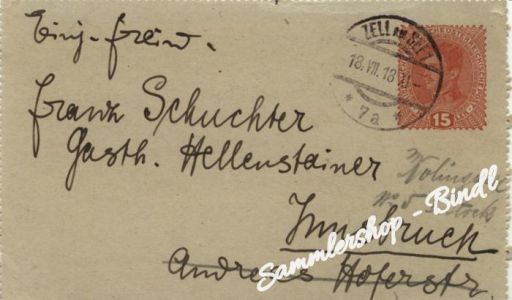 Einj. freiw.
ZELL am SEE
18.VII.18
* 7a *
15
Franz Schuchter
Gasth. Hellenstainer
No 5 Stock
Innsbruck
Andreas Hoferstr.
Sammlershop - Bindl